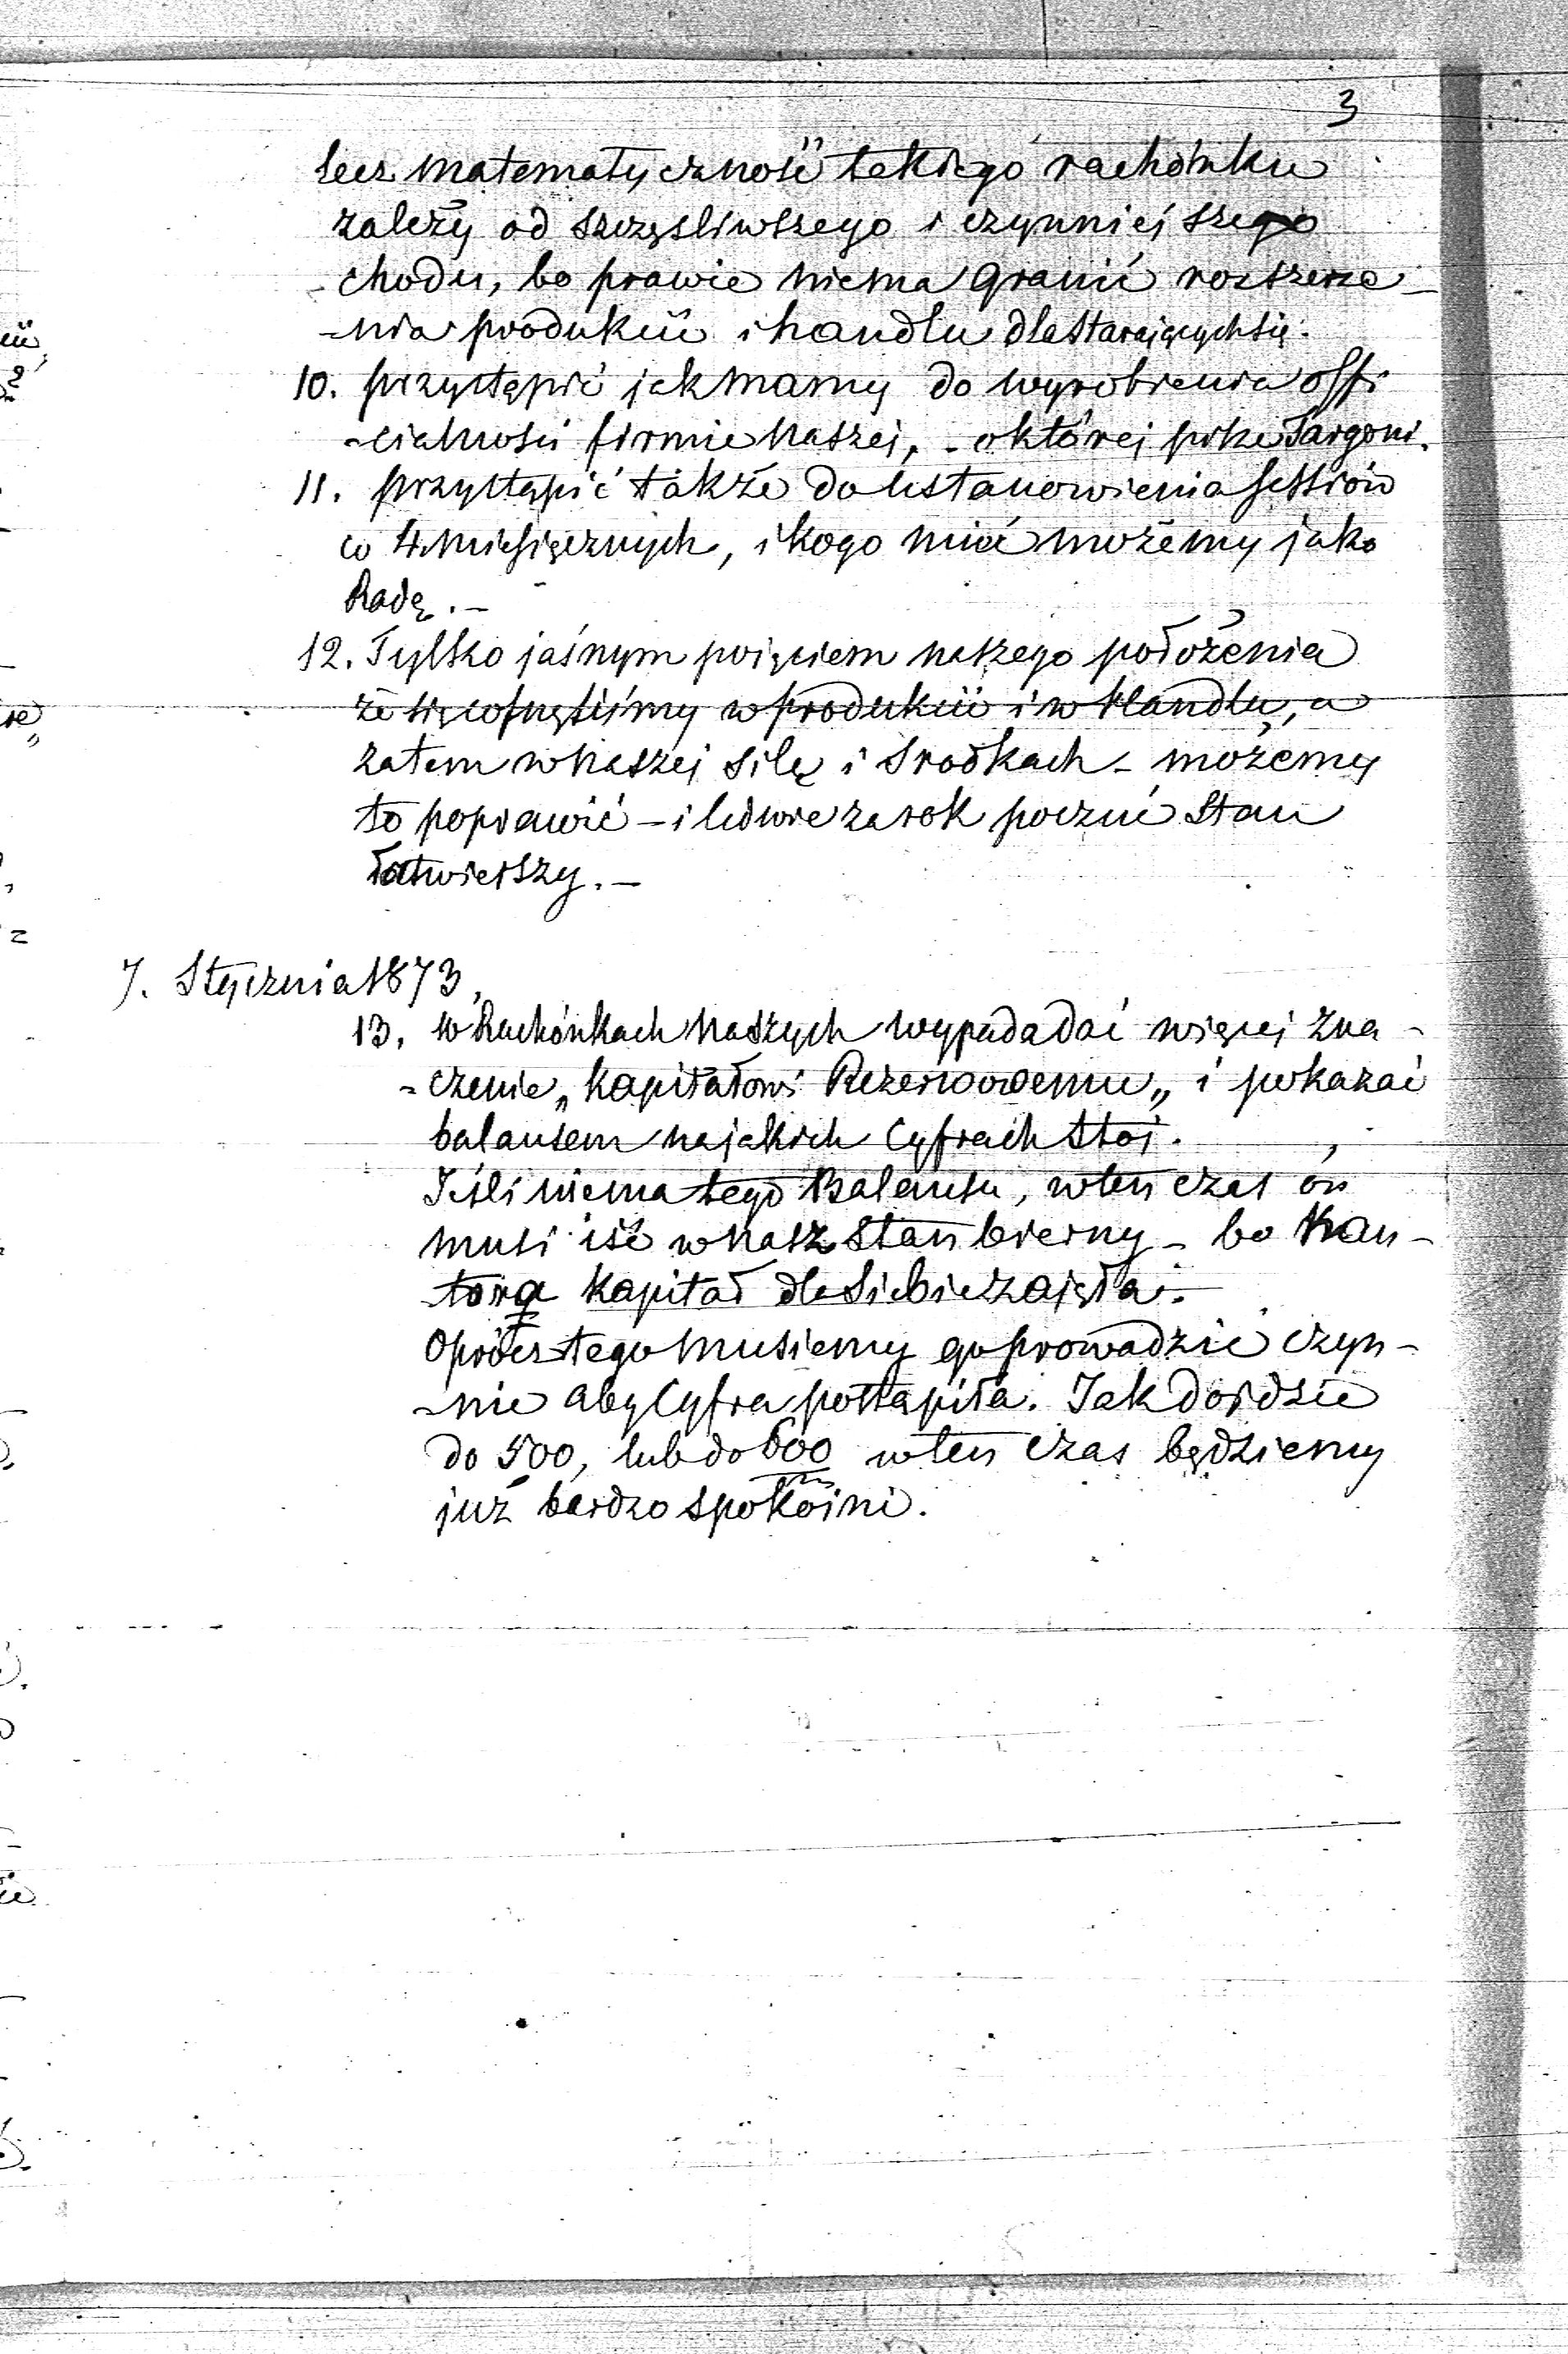 3
lecz matematyczność takiego rachónku
zależy od szczęsliwszego i czynniejszego
chodu, bo prawie niema granić rozszerze-
-nia produkcii i handlu dla starających się.
10. przystąpić jak mamy do wyrobienia offi
-cialności firmie naszej, - o której
11. przystąpić także do ustanowienia sessiów
co 4. miesięcznych, i kogo mieć możemy jako
Radę. -
12. Tylko jaśnym pojęciem naszego położenia
że się cofnęliśmy w produkcii i w Handlu, a
zatem w naszej silę i srodkach - możemy
to poprawić - i ledwie za rok poczuć stan
łatwieiszy. -
7. Stycznia 1873,
13. W Rachónkach naszych wypada dać więcej zna-
-czenie „Kapitałowi Rezerwowemu„ i pokazać
balansem na jakich Cyfrach stoi.
Jeśli niema tego Balansu, w ten czas ón
musi iść w nasz stan bierny - bo Kan-
-tora kapitał dla siebie zajęła.
Oprócz tego musiemy go prowadzić czyn-
-nie aby Cyfra postąpiła. Jak dojdzie
do 500, lub do 600 w ten czas będziemy
już bardzo spokoini.